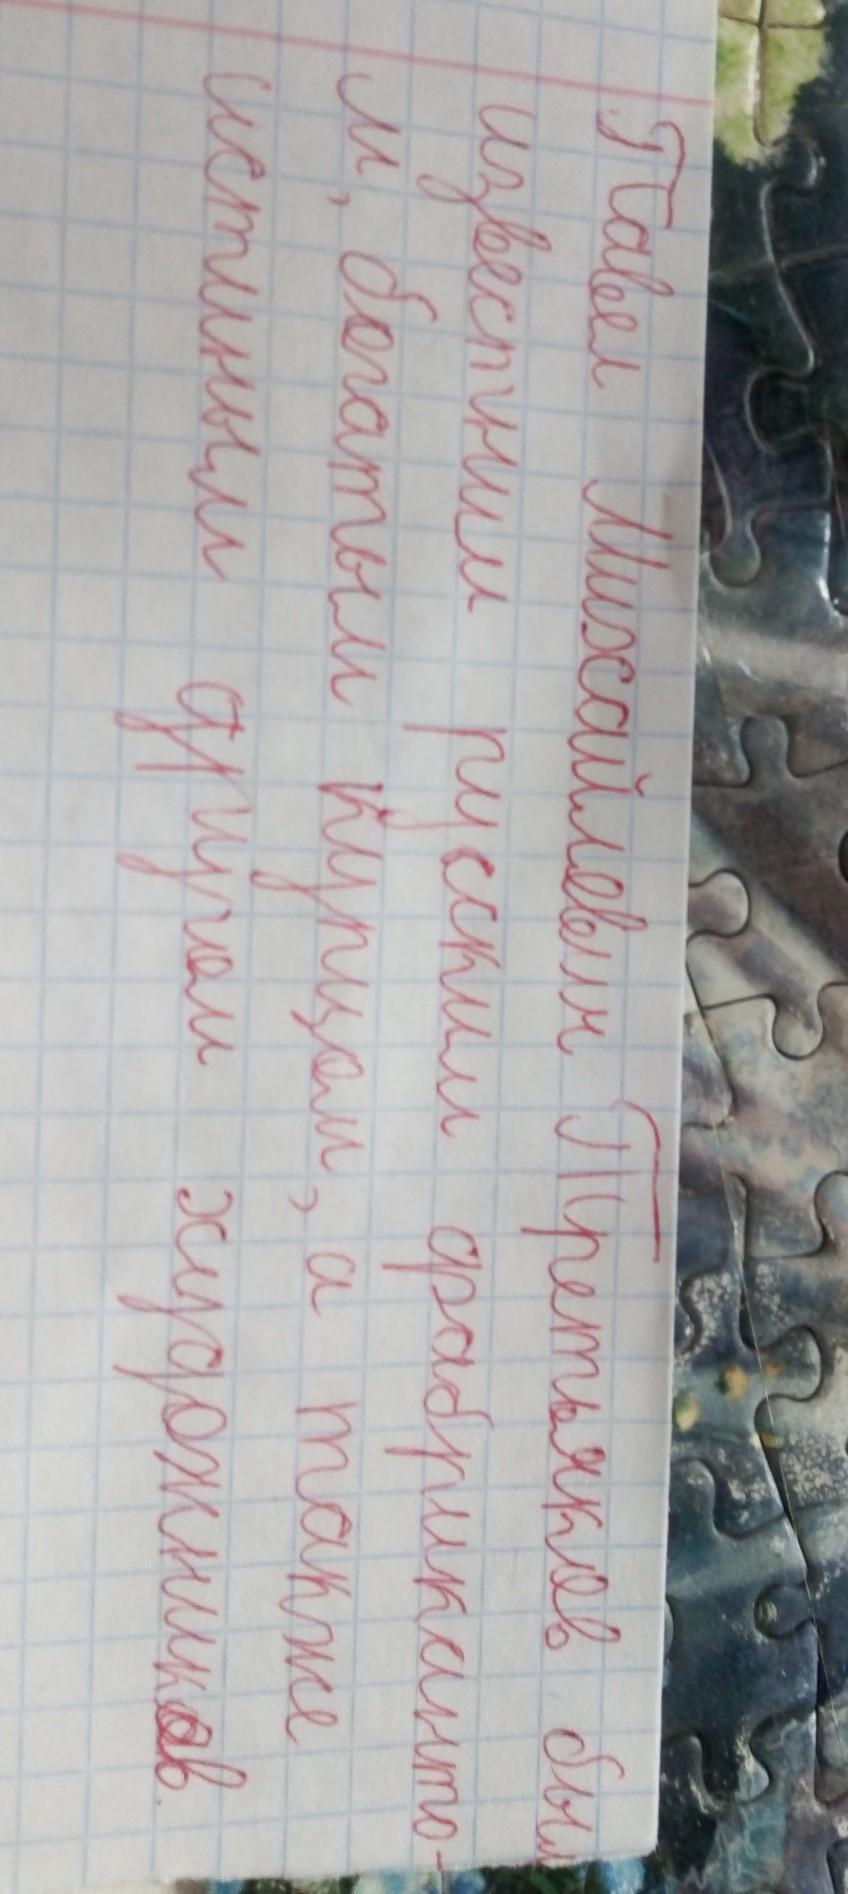 Павел Михайлович Третьяков был
известним русским фабриканто-
м, богатым купцом, а также
истинным другом художников.